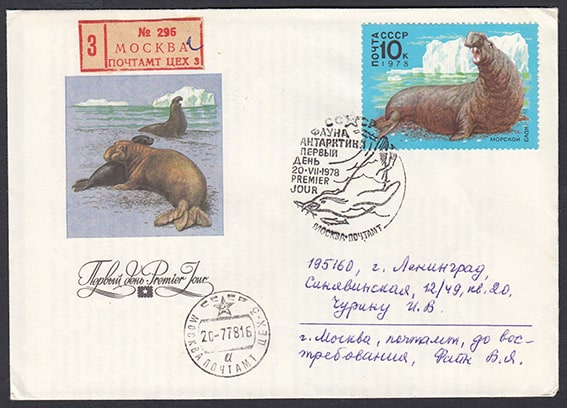 № 296
3 МОСКВА
ПОЧТАМТ ЦЕХ 3
ПОЧТА СССР
10 К
1978
МОРСКОЙ СЛОН
СССР
ФАУНА
АНТАРКТИКИ
ПЕРВЫЙ
ДЕНЬ
20·VII·1978
PREMIER
JOUR
МОСКВА·ПОЧТАМТ
Первый день Premier Jour
СССР
20-77816
МОСКВА ПОЧТАМТ
и
195160, г. Ленинград,
Синявинская, 12/49, кв. 20,
Чурину И.В
г. Москва, почтамт, до вос-
требования, Фатн В.Я.